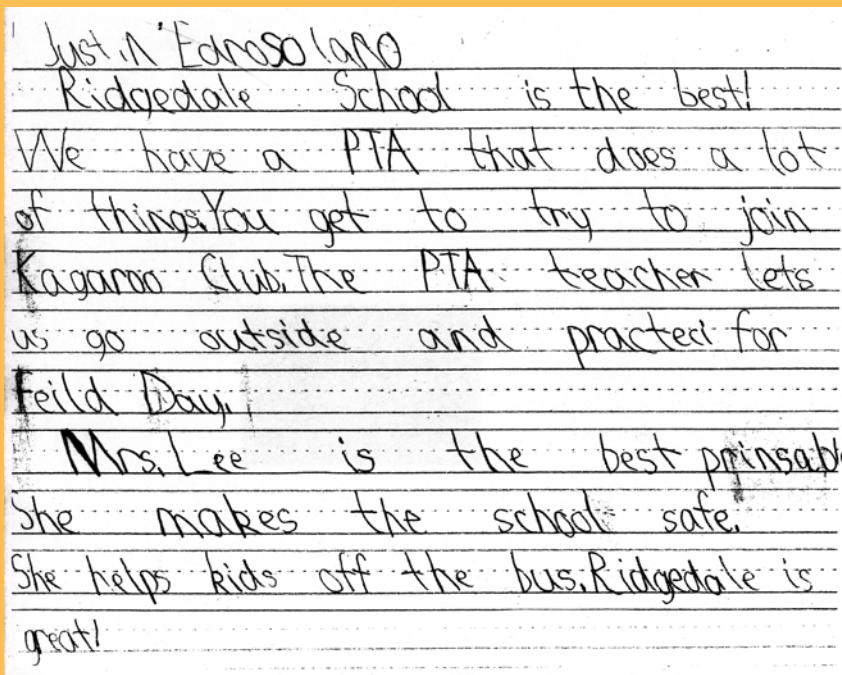 Justin Edrosolano
Ridgedale School is the best!
We have a PTA that does a lot
of things.You get to try to join
Kagaroo Club.The PTA teacher lets
us go outside and practed for
Feild Day.
Mrs. Lee is the best prinsable
She makes the school safe.
She helps kids off the bus.Ridgedale is
great!